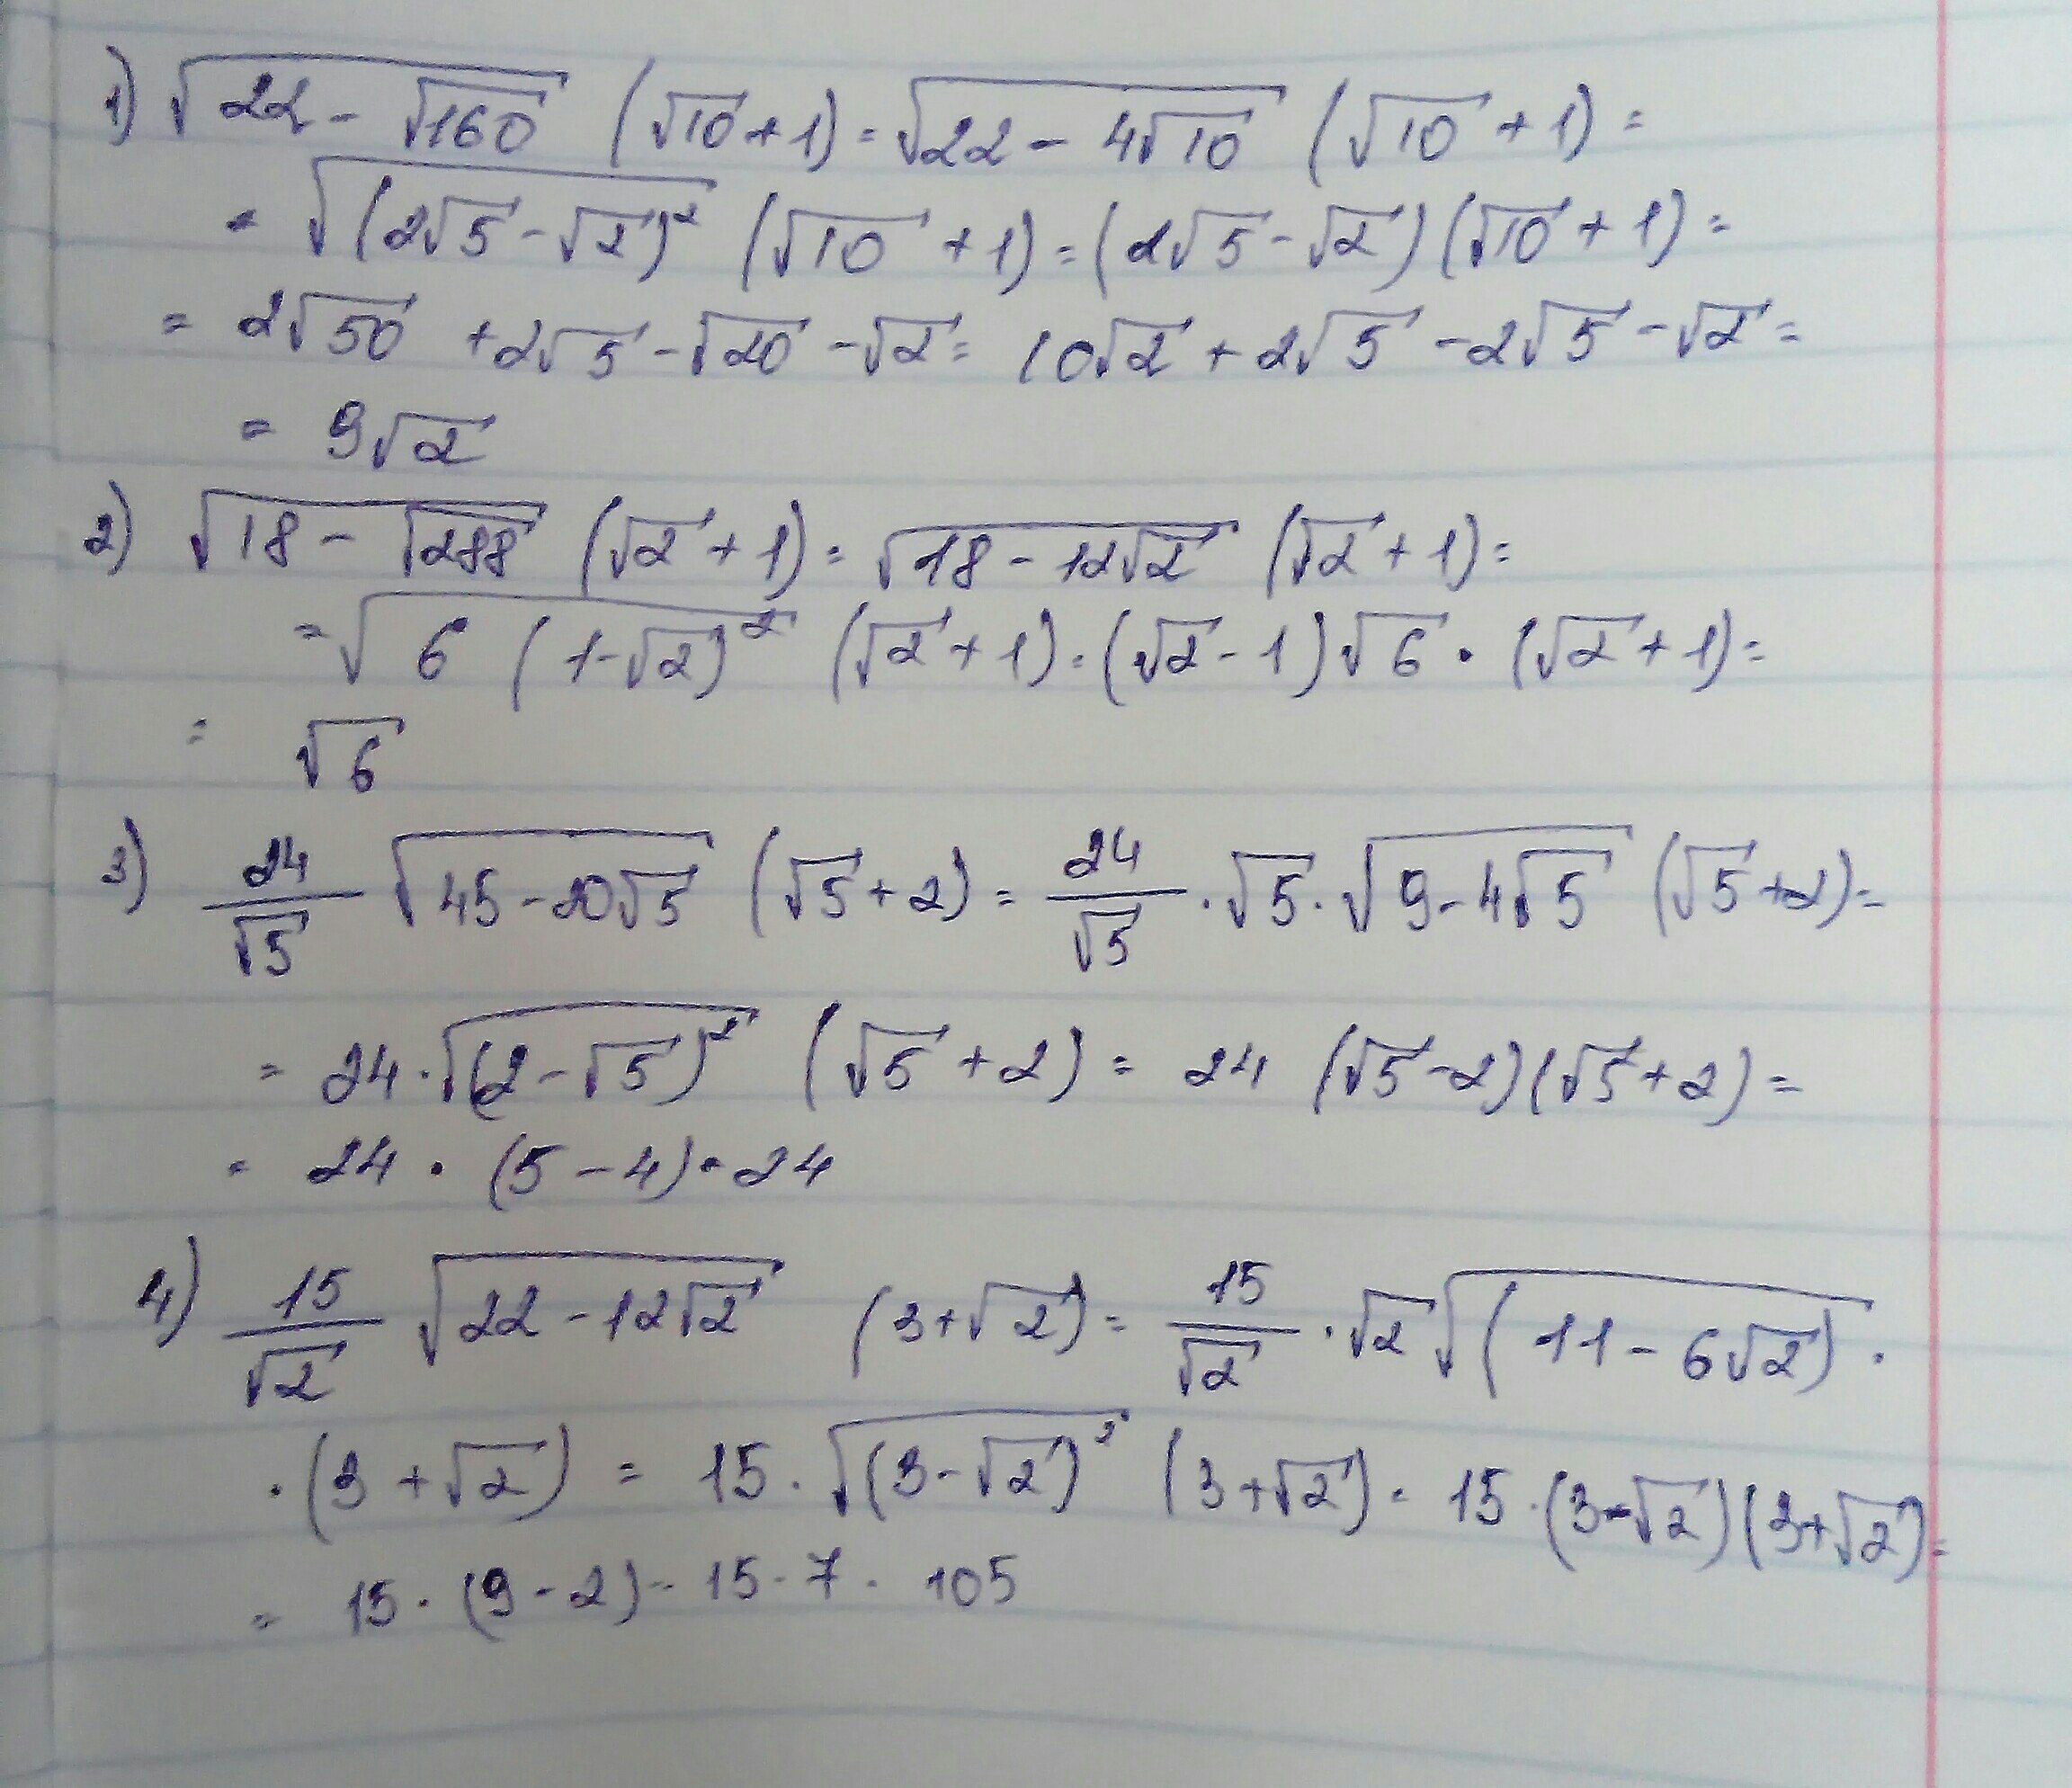 1) √(22 - √160) (√10 + 1) = √(22 - 4√10) (√10 + 1) =
= √((2√5 - √2)²) (√10 + 1) = (2√5 - √2) (√10 + 1) =
= 2√50 + 2√5 - √20 - √2 = 10√2 + 2√5 - 2√5 - √2 =
= 9√2
2) √(18 - √288) (√2 + 1) = √(18 - 12√2) (√2 + 1) =
= √(6 (1 - √2)²) (√2 + 1) = (√2 - 1) √6 · (√2 + 1) =
= √6
3) 24/√5 √(45 - 20√5) (√5 + 2) = 24/√5 · √5 · √(9 - 4√5) (√5 + 2) =
= 24 · √((2 - √5)²) (√5 + 2) = 24 (√5 - 2) (√5 + 2) =
= 24 · (5 - 4) = 24
4) 15/√2 √(22 - 12√2) (3 + √2) = 15/√2 · √2 √((11 - 6√2)) ·
· (3 + √2) = 15 · √((3 - √2)²) (3 + √2) = 15 · (3 - √2) (3 + √2) =
= 15 · (9 - 2) = 15 · 7 = 105